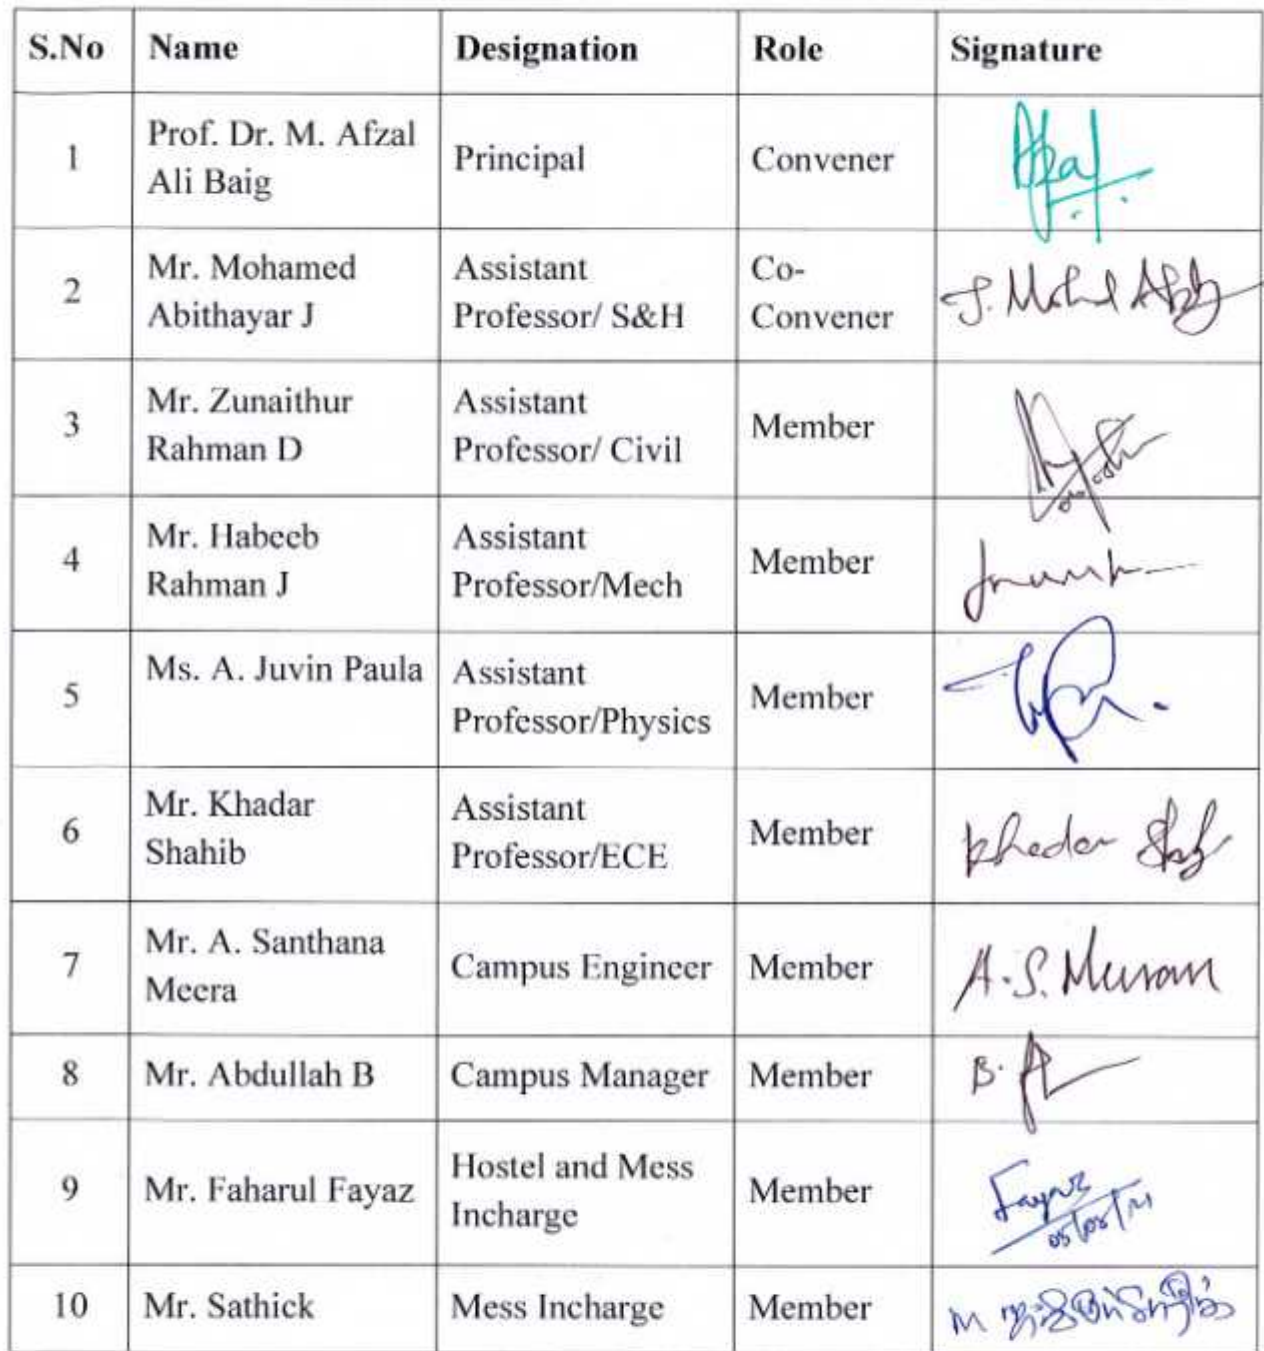 S.No Name Designation Role Signature
1 Prof. Dr. M. Afzal Ali Baig Principal Convener
2 Mr. Mohamed Abithayar J Assistant Professor/ S&H Co-Convener J. Mohd
3 Mr. Zunaithur Rahman D Assistant Professor/ Civil Member
4 Mr. Habeeb Rahman J Assistant Professor/Mech Member
5 Ms. A. Juvin Paula Assistant Professor/Physics Member
6 Mr. Khadar Shahib Assistant Professor/ECE Member Khadar
7 Mr. A. Santhana Meera Campus Engineer Member A.S.
8 Mr. Abdullah B Campus Manager Member B.
9 Mr. Faharul Fayaz Hostel and Mess Incharge Member Fayaz
10 Mr. Sathick Mess Incharge Member M